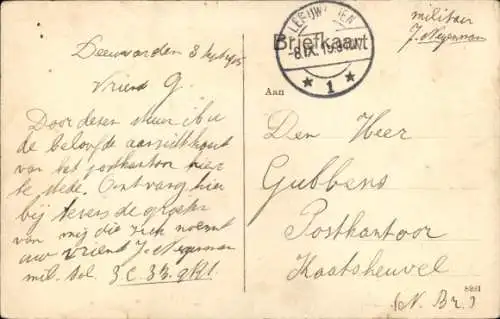 Leeuwarden 8 Sept 15
Vriend G.
Door dezen stuur ik u
de beloofde aanzichtkaart
van het postkantoor hier
te stede. Ontvang hier
bij tevens de groeten
van mij die zich noemt
uw vriend J. Neyenman
mil. tel. 3.C. 33.
LEEUWARDEN
Briefkaart
-8.IX.15
* 1 *
militair
J. Neyenman
Aan
Den Heer
Gubbens
Postkantoor
Kaatsheuvel
(N. Br.)
8881